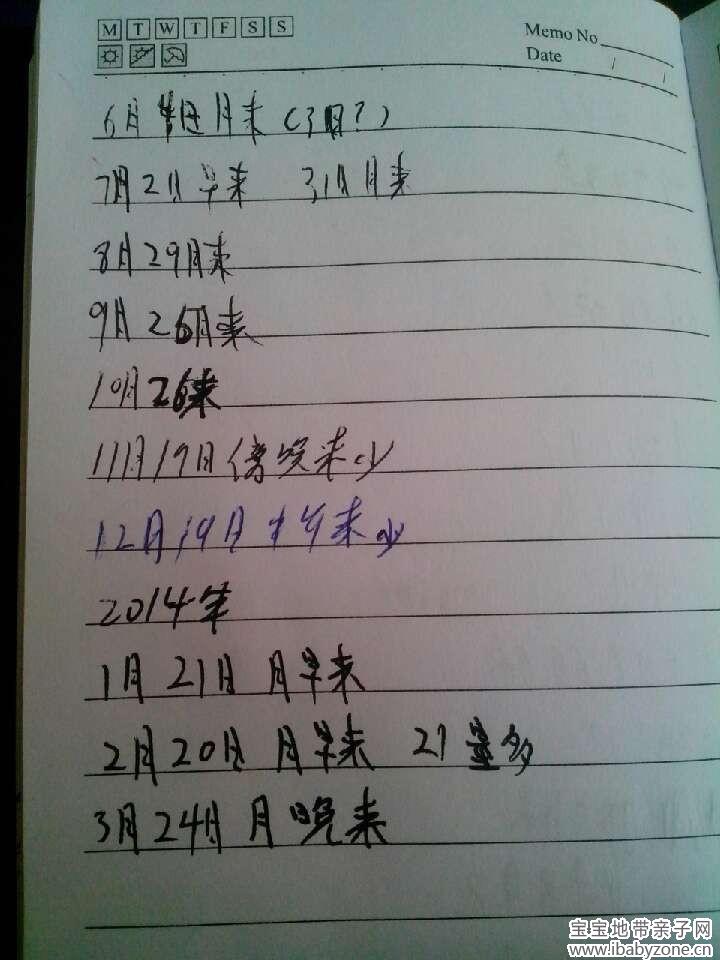 M T W T F S S
Memo No
Date / /
6月 月来(3月?)
7月21 早来 31日月来
8月29月来
9月26月来
10月26来
11月19日傍晚来少
12月19日中午来少
2014年
1月21日 月早来
2月20日 月早来 21量多
3月24日 月晚来
宝宝地带亲子网
www.ibabyzone.cn